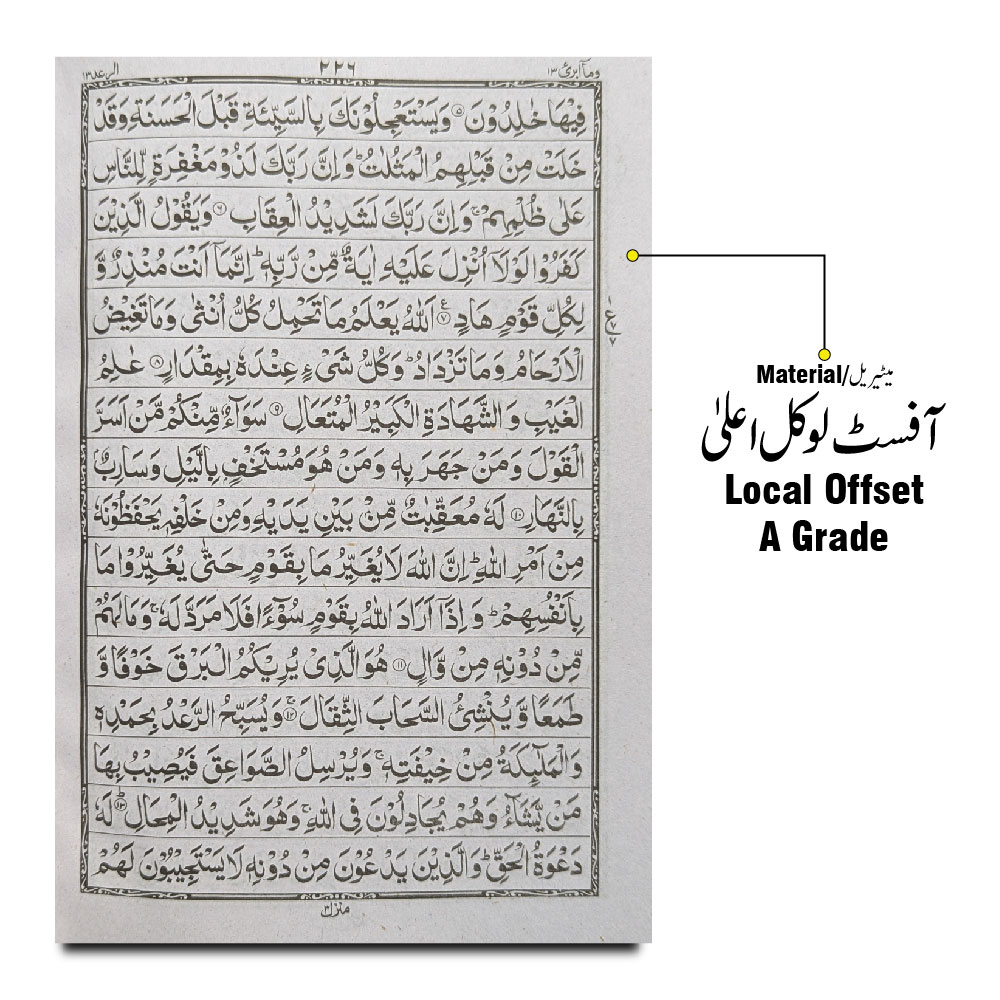 وما ابرئ ١٣ ٢٢٦ الرعد ١٣
فِيْهَا خٰلِدُوْنَ ﴿۵﴾ وَيَسْتَعْجِلُوْنَكَ بِالسَّيِّئَةِ قَبْلَ الْحَسَنَةِ وَقَدْ
خَلَتْ مِنْ قَبْلِهِمُ الْمَثُلٰتُ ؕ وَاِنَّ رَبَّكَ لَذُوْ مَغْفِرَةٍ لِّلنَّاسِ
عَلٰى ظُلْمِهِمْ ۚ وَاِنَّ رَبَّكَ لَشَدِيْدُ الْعِقَابِ ﴿۶﴾ وَيَقُوْلُ الَّذِيْنَ
كَفَرُوْا لَوْلَاۤ اُنْزِلَ عَلَيْهِ اٰيَةٌ مِّنْ رَّبِّهٖ ؕ اِنَّمَاۤ اَنْتَ مُنْذِرٌ وَّ
لِكُلِّ قَوْمٍ هَادٍ ﴿۷﴾ اَللّٰهُ يَعْلَمُ مَا تَحْمِلُ كُلُّ اُنْثٰى وَمَا تَغِيْضُ
الْاَرْحَامُ وَمَا تَزْدَادُ ؕ وَكُلُّ شَىْءٍ عِنْدَهٗ بِمِقْدَارٍ ﴿۸﴾ عٰلِمُ
الْغَيْبِ وَالشَّهَادَةِ الْكَبِيْرُ الْمُتَعَالِ ﴿۹﴾ سَوَآءٌ مِّنْكُمْ مَّنْ اَسَرَّ
الْقَوْلَ وَمَنْ جَهَرَ بِهٖ وَمَنْ هُوَ مُسْتَخْفٍ بِالَّيْلِ وَسَارِبٌ
بِالنَّهَارِ ﴿۱۰﴾ لَهٗ مُعَقِّبٰتٌ مِّنْ بَيْنِ يَدَيْهِ وَمِنْ خَلْفِهٖ يَحْفَظُوْنَهٗ
مِنْ اَمْرِ اللّٰهِ ؕ اِنَّ اللّٰهَ لَا يُغَيِّرُ مَا بِقَوْمٍ حَتّٰى يُغَيِّرُوْا مَا
بِاَنْفُسِهِمْ ؕ وَاِذَاۤ اَرَادَ اللّٰهُ بِقَوْمٍ سُوْٓءًا فَلَا مَرَدَّ لَهٗ ۚ وَمَا لَهُمْ
مِّنْ دُوْنِهٖ مِنْ وَّالٍ ﴿۱۱﴾ هُوَ الَّذِىْ يُرِيْكُمُ الْبَرْقَ خَوْفًا وَّ
طَمَعًا وَّيُنْشِئُ السَّحَابَ الثِّقَالَ ﴿۱۲﴾ وَيُسَبِّحُ الرَّعْدُ بِحَمْدِهٖ
وَالْمَلٰٓئِكَةُ مِنْ خِيْفَتِهٖ ۚ وَيُرْسِلُ الصَّوَاعِقَ فَيُصِيْبُ بِهَا
مَنْ يَّشَآءُ وَهُمْ يُجَادِلُوْنَ فِى اللّٰهِ ۚ وَهُوَ شَدِيْدُ الْمِحَالِ ﴿۱۳﴾ لَهٗ
دَعْوَةُ الْحَقِّ ؕ وَالَّذِيْنَ يَدْعُوْنَ مِنْ دُوْنِهٖ لَا يَسْتَجِيْبُوْنَ لَهُمْ
منزل ٣
Material/میٹیریل
آفسٹ لوکل اعلیٰ
Local Offset
A Grade